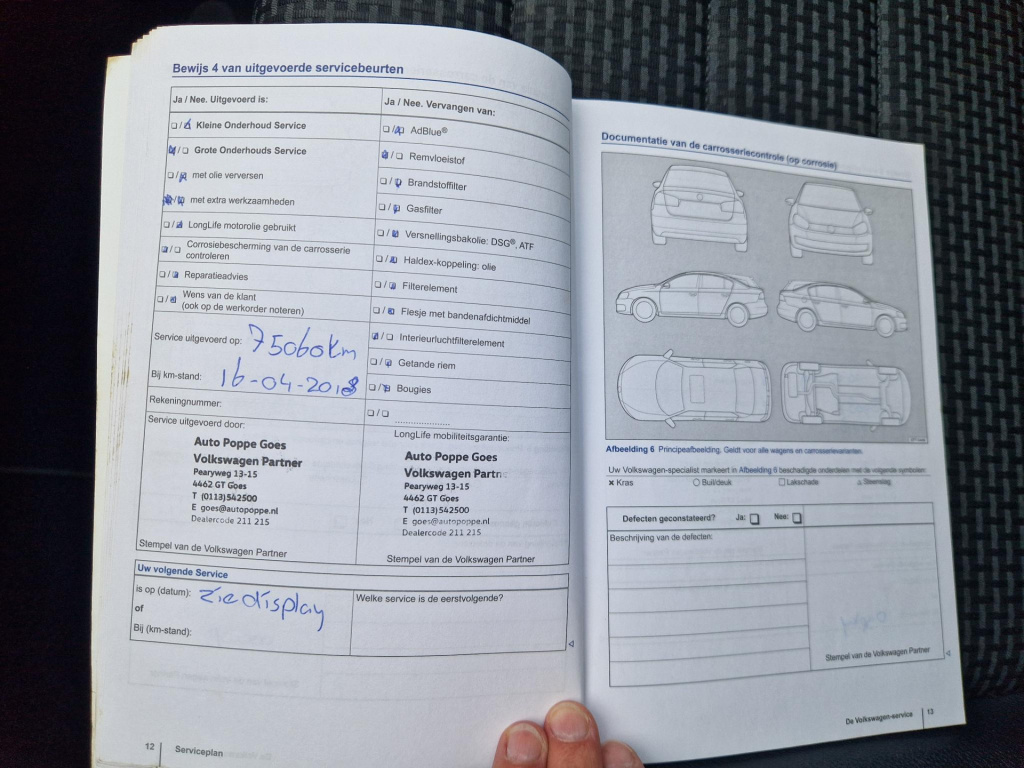 Bewijs 4 van uitgevoerde servicebeurten
Ja / Nee. Uitgevoerd is:
Kleine Onderhoud Service
Grote Onderhouds Service
met olie verversen
met extra werkzaamheden
LongLife motorolie gebruikt
Corrosiebescherming van de carrosserie
controleren
Reparatieadvies
Wens van de klant
(ook op de werkorder noteren)
Service uitgevoerd op: 75060km
Bij km-stand: 16-04-2018
Rekeningnummer:
Service uitgevoerd door:
Auto Poppe Goes
Volkswagen Partner
Pearyweg 13-15
4462 GT Goes
T (0113)542500
E goes@autopoppe.nl
Dealercode 211 215
Stempel van de Volkswagen Partner
Ja / Nee. Vervangen van:
AdBlue®
Remvloeistof
Brandstoffilter
Gasfilter
Versnellingsbakolie: DSG®, ATF
Haldex-koppeling: olie
Filterelement
Flesje met bandenafdichtmiddel
Interieurluchtfilterelement
Getande riem
Bougies
LongLife mobiliteitsgarantie:
Auto Poppe Goes
Volkswagen Partn
Pearyweg 13-15
4462 GT Goes
T (0113)542500
E goes@autopoppe.nl
Dealercode 211 215
Stempel van de Volkswagen Partner
Uw volgende Service
is op (datum): zie display
of
Bij (km-stand):
Welke service is de eerstvolgende?
12 Serviceplan
Documentatie van de carrosseriecontrole (op corrosie)
Afbeelding 6 Principeafbeelding. Geldt voor alle wagens en carrosserievarianten.
Uw Volkswagen-specialist markeert in Afbeelding 6 beschadigde onderdelen met de volgende symbolen:
× Kras Buil/deuk Lakschade Steenslag
Defecten geconstateerd? Ja: Nee:
Beschrijving van de defecten:
Stempel van de Volkswagen Partner
De Volkswagen-service 13